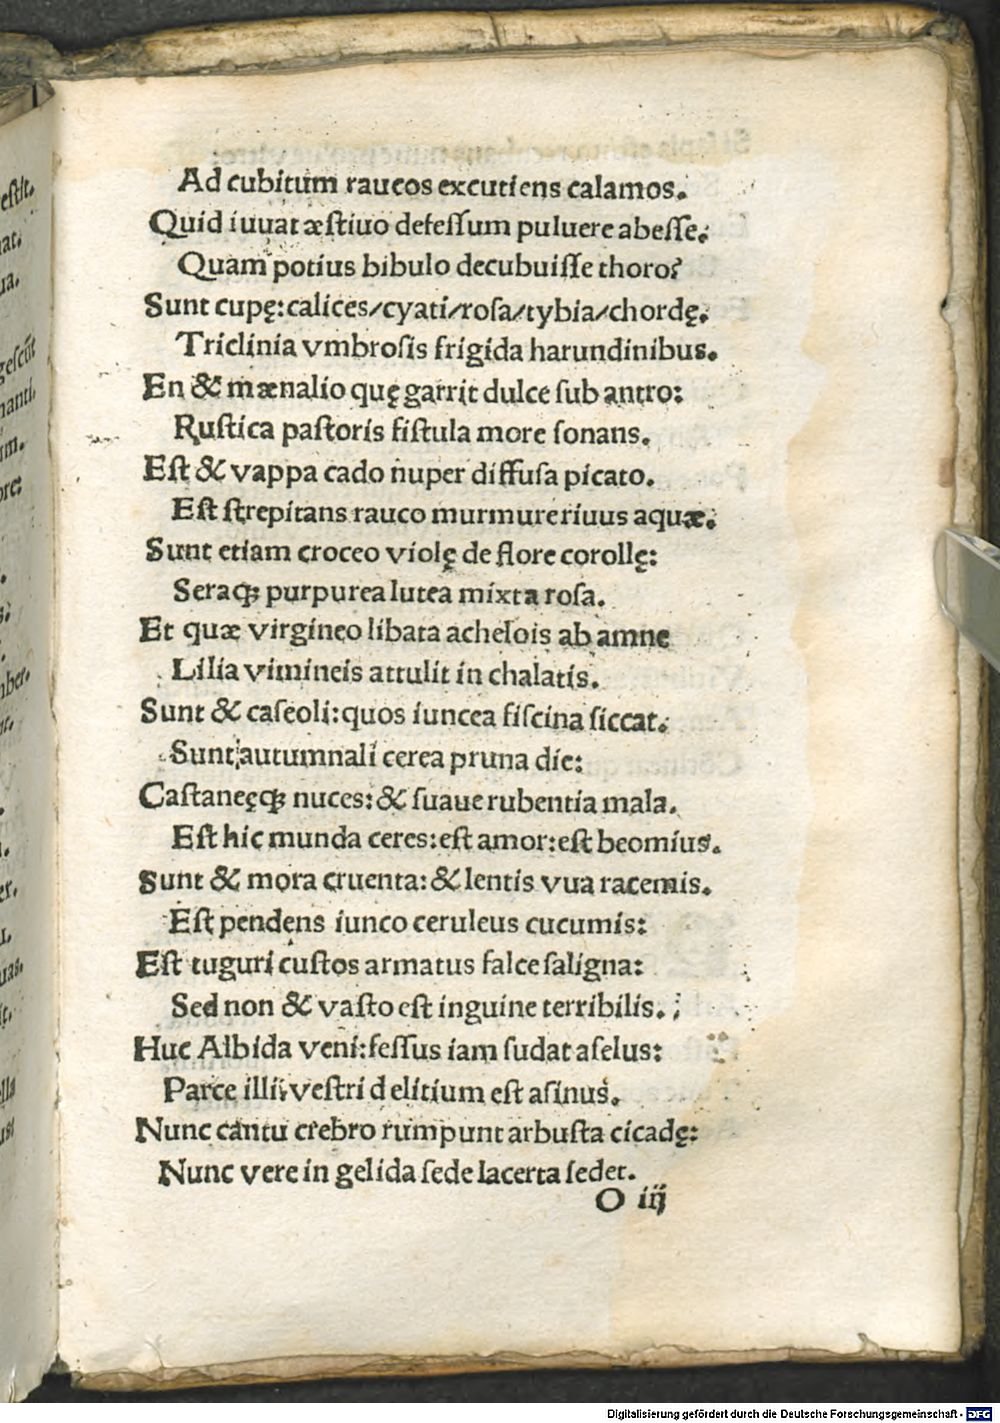 Ad cubitum raucos excutiens calamos.
Quid iuuat æstiuo defessum puluere abesse.
Quam potius bibulo decubuisse thoro?
Sunt cupę: calices/cyati/rosa/tybia/chordę.
Triclinia vmbrosis frigida harundinibus.
En & mænalio quę garrit dulce sub antro:
Rustica pastoris fistula more sonans.
Est & vappa cado nuper diffusa picato.
Est strepitans rauco murmure riuus aquæ.
Sunt etiam croceo violę de flore corollę:
Seraqꝫ purpurea lutea mixta rosa.
Et quæ virgineo libata achelois ab amne
Lilia vimineis attulit in chalatis.
Sunt & caseoli: quos iuncea fiscina siccat.
Sunt autumnali cerea pruna die:
Castaneęqꝫ nuces: & suaue rubentia mala.
Est hic munda ceres: est amor: est beomius.
Sunt & mora cruenta: & lentis vua racemis.
Est pendens iunco ceruleus cucumis:
Est tuguri custos armatus falce saligna:
Sed non & vasto est inguine terribilis.
Huc Albida veni: fessus iam sudat aselus:
Parce illi: vestri delitium est asinus.
Nunc cantu crebro rumpunt arbusta cicadę:
Nunc vere in gelida sede lacerta sedet.
O iij
Digitalisierung gefördert durch die Deutsche Forschungsgemeinschaft - DFG